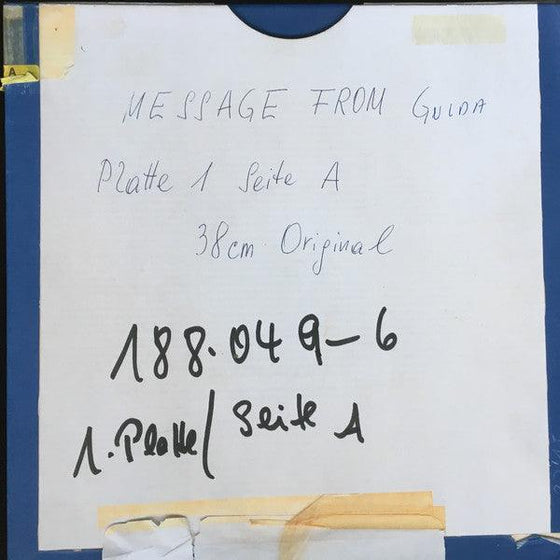 MESSAGE FROM GULDA
Platte 1 Seite A
38cm Original
188.049-6
1. Platte/Seite A
A